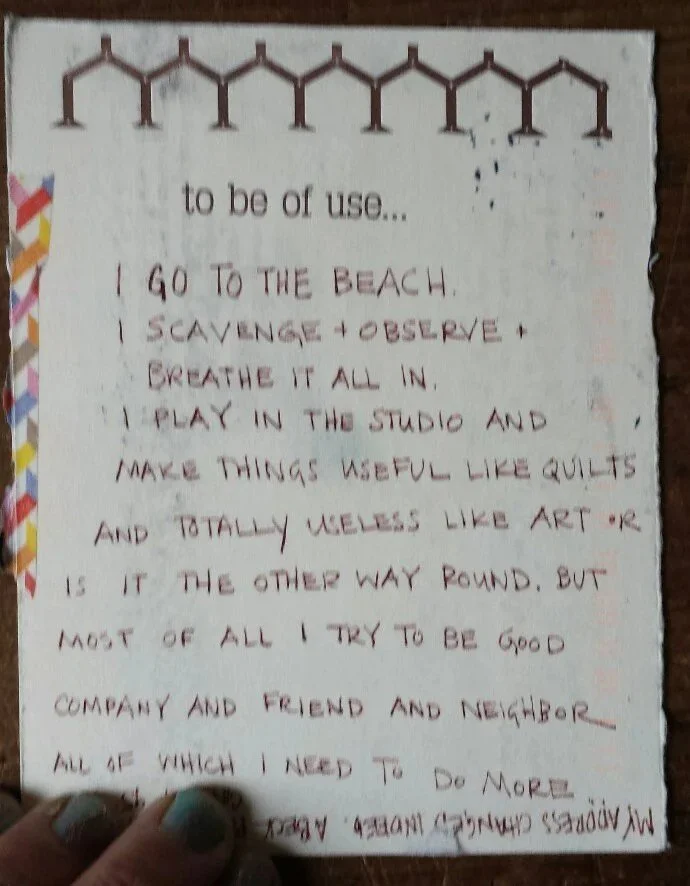 to be of use...
I GO TO THE BEACH.
I SCAVENGE + OBSERVE +
BREATHE IT ALL IN.
I PLAY IN THE STUDIO AND
MAKE THINGS USEFUL LIKE QUILTS
AND TOTALLY USELESS LIKE ART OR
IS IT THE OTHER WAY ROUND. BUT
MOST OF ALL I TRY TO BE GOOD
COMPANY AND FRIEND AND NEIGHBOR
ALL OF WHICH I NEED TO DO MORE
MY ADDRESS CHANGED INDEED.